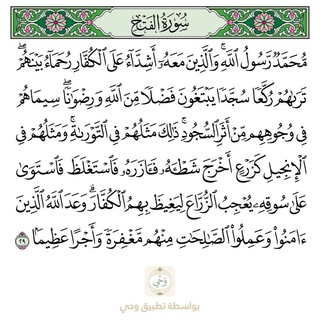 سُورَةُ الفَتۡحِ
مُّحَمَّدٞ رَّسُولُ ٱللَّهِۚ وَٱلَّذِينَ مَعَهُۥٓ أَشِدَّآءُ عَلَى ٱلۡكُفَّارِ رُحَمَآءُ بَيۡنَهُمۡۖ
تَرَىٰهُمۡ رُكَّعٗا سُجَّدٗا يَبۡتَغُونَ فَضۡلٗا مِّنَ ٱللَّهِ وَرِضۡوَٰنٗاۖ سِيمَاهُمۡ
فِي وُجُوهِهِم مِّنۡ أَثَرِ ٱلسُّجُودِۚ ذَٰلِكَ مَثَلُهُمۡ فِي ٱلتَّوۡرَىٰةِۚ وَمَثَلُهُمۡ فِي
ٱلۡإِنجِيلِ كَزَرۡعٍ أَخۡرَجَ شَطۡـَٔهُۥ فَـَٔازَرَهُۥ فَٱسۡتَغۡلَظَ فَٱسۡتَوَىٰ
عَلَىٰ سُوقِهِۦ يُعۡجِبُ ٱلزُّرَّاعَ لِيَغِيظَ بِهِمُ ٱلۡكُفَّارَۗ وَعَدَ ٱللَّهُ ٱلَّذِينَ
ءَامَنُواْ وَعَمِلُواْ ٱلصَّٰلِحَٰتِ مِنۡهُم مَّغۡفِرَةٗ وَأَجۡرًا عَظِيمَۢا ٢٩
وَحْي
بواسطة تطبيق وحي